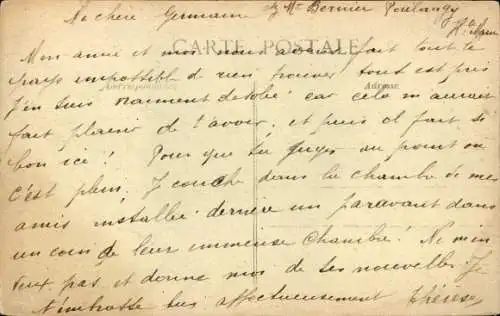 Ma chère Germaine chez Mr Bernier Poulangy
Hte Marne
CARTE POSTALE
Mon amie et moi nous avons fait tout le
Correspondance
Adresse
pays impossible de rien trouver tout est pris
J'en suis vraiment désolée car cela m'aurait
fait plaisir de t'avoir, et puis il fait si
bon ici! Pour que tu juges au point où
c'est plein. Je couche dans la chambre de mes
amis installée derrière un paravant dans
un coin de leur immense chambre! Ne m'en
veux pas et donne moi de tes nouvelles. Je
t'embrasse très affectueusement Thérèse